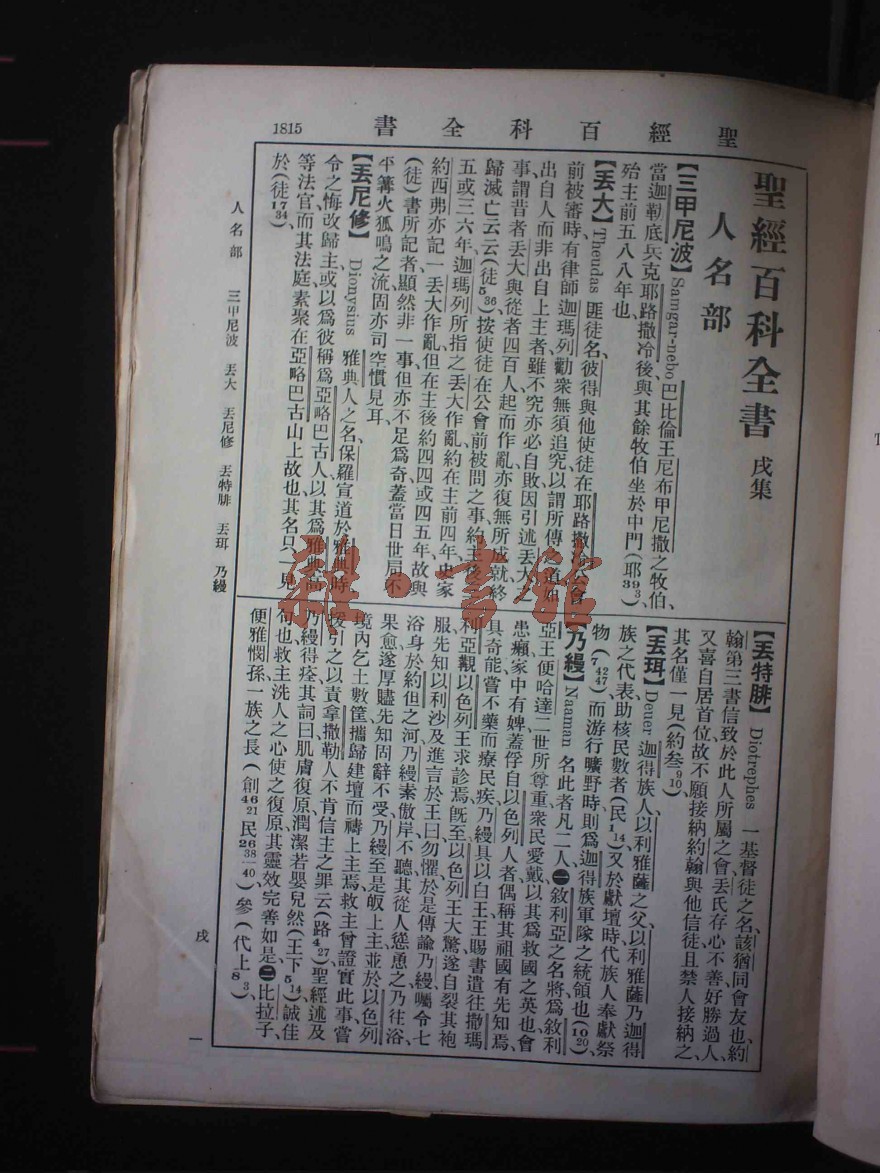 聖經百科全書
1815
聖經百科全書 戌集
人名部
【三甲尼波】Samgar-nebo 巴比倫王尼布甲尼撒之牧伯、
當迦勒底兵克耶路撒冷後與其餘牧伯坐於中門(耶39 3)、
殆主前五八八年也、
【丟大】Theudas 匪徒名、彼得與他使徒在耶路撒冷公會
前被審時、有律師迦瑪列勸衆無須追究、以謂所傳之道如
出自人而非出自上主者、雖不究亦必自敗、因引述丟大之
事、謂昔者丟大與從者四百人起而作亂、亦復無所成就、終
歸滅亡云云(徒5 36)按使徒在公會前被問之事、約主後三
五或三六年、迦瑪列所指之丟大作亂、約在主前四年、史家
約西弗亦記一丟大作亂、但在主後約四四或四五年、故與
(徒)書所記者、顯然非一事、但亦不足爲奇、蓋當日世局不
平、篝火狐鳴之流、固亦司空慣見耳、
【丟尼修】 Dionysius 雅典人之名、保羅宣道於雅典時、
令之悔改歸主、或以爲彼稱爲亞略巴古人、以其爲雅典高
等法官、而其法庭素聚在亞略巴古山上故也、其名只一見
於(徒17 34)、
【丟特腓】 Diotrephes 一基督徒之名、該猶同會友也、約
翰第三書信致於此人所屬之會、丟氏存心不善、好勝過人、
又喜自居首位、故不願接納約翰與他信徒、且禁人接納之、
其名僅一見(約叁9 10)、
【丟珥】Deuer 迦得族人、以利雅薩之父、以利雅薩乃迦得
族之代表、助核民數者(民1 14)又於獻壇時代族人奉獻祭
物(7 42 47)而游行曠野時、則爲迦得族軍隊之統領也(10 20)、
【乃縵】Naaman 名此者凡二人㊀敘利亞之名將、爲敘利
亞王便哈達二世所尊重、衆民愛戴、以其爲救國之英也、會
患癩、家中有婢、蓋俘自以色列人者、偶稱其祖國有先知焉、
具奇能、嘗不藥而療民疾、乃縵具以白王、王賜書遣往撒瑪
利亞、覲以色列王求診焉、旣至、以色列王大驚、遂自裂其袍
服、先知以利沙及進言於王曰、勿懼、於是傳諭乃縵、囑令七
浴身於約但之河、乃縵素傲岸、不聽、其從人慫恿之、乃往浴、
果愈、遂厚贐先知、固辭不受、乃縵至是皈上主、並於以色列
境內乞土數筐、攜歸建壇而禱上主焉、救主曾證實此事、嘗
援引之以責拿撒勒人不肯信主之罪云(路4 27)聖經述及
乃縵得痊、其詞曰、肌膚復原、潤潔若嬰兒然(王下5 14)誠佳
句也、救主洗人之心、使之復原、其靈效完善如是㊁比拉子、
便雅憫孫、一族之長(創46 21民26 38—40)、參(代上8 3)、
人名部 三甲尼波 丟大 丟尼修 丟特腓 丟珥 乃縵
戌
一
雜·書館